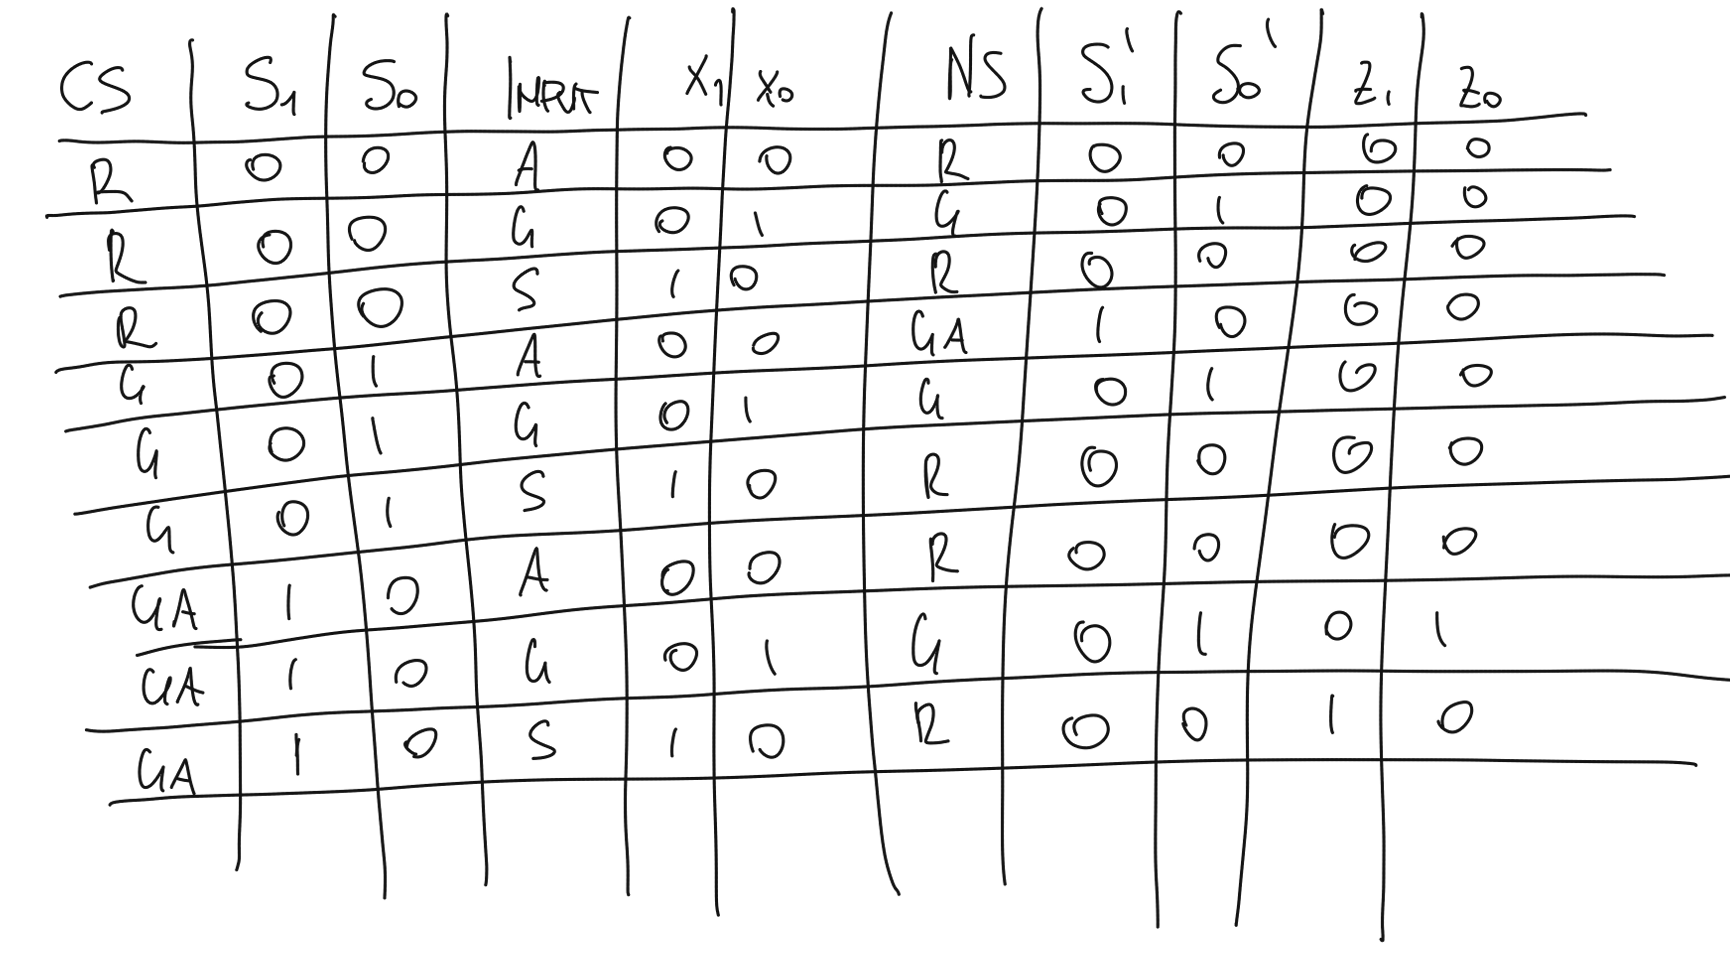 CS S1 S0 INPUT X1 X0 NS S1' S0' Z1 Z0
R 0 0 A 0 0 R 0 0 0 0
R 0 0 G 0 1 G 0 1 0 0
R 0 0 S 1 0 R 0 0 0 0
G 0 1 A 0 0 GA 1 0 0 0
G 0 1 G 0 1 G 0 1 0 0
G 0 1 S 1 0 R 0 0 0 0
GA 1 0 A 0 0 R 0 0 0 0
GA 1 0 G 0 1 G 0 1 0 1
GA 1 0 S 1 0 R 0 0 1 0